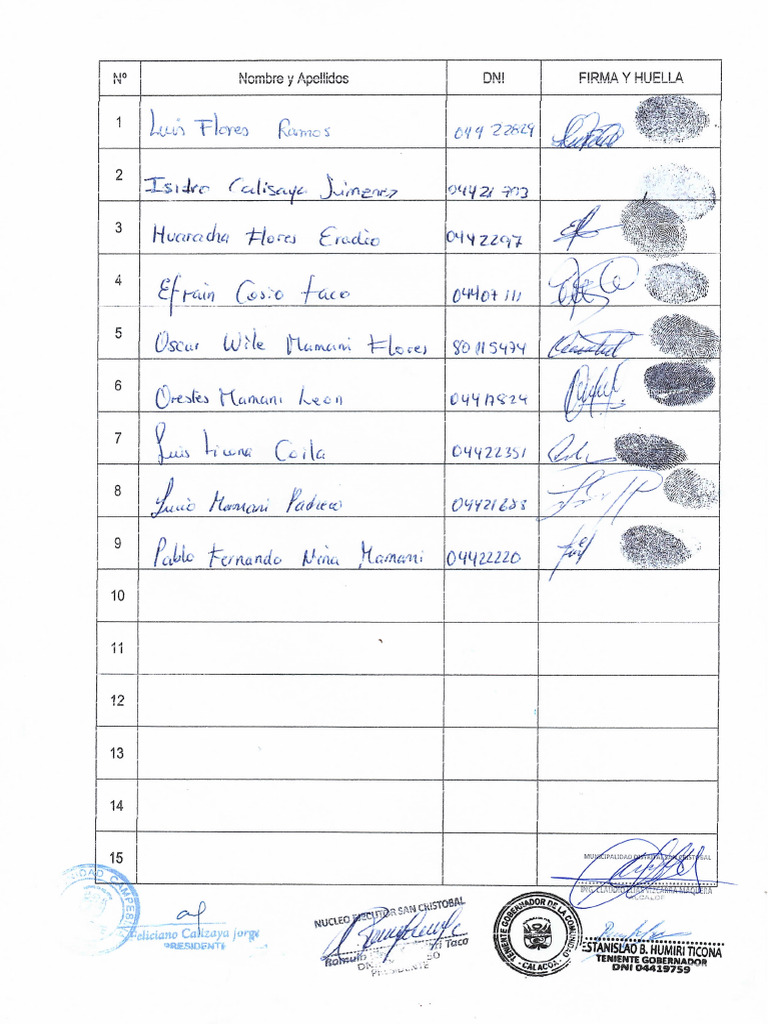 Nº Nombre y Apellidos DNI FIRMA Y HUELLA
1 Luis Flores Ramos 04422829
2 Isidro Calisaya Jimenez
3 Huaracha Flores Eradio 0442297
4 Efrain Cosio Taco
5 Oscar Wile Mamani Flores 80115474
6 Orestes Mamani Leon 04417824
7 Luis Ticona Coila 04422351
8 Lucio Mamani Pacheco
9 Pablo Fernando Nina Mamani 04422220
10
11
12
13
14
15
MUNICIPALIDAD DISTRITAL SAN CRISTOBAL
ALCALDE
Feliciano Calizaya Jorge
PRESIDENTE
NUCLEO EJECUTOR SAN CRISTOBAL
Romulo Taco
DN 50
PRESIDENTE
TENIENTE GOBERNADOR DE LA COMUNIDAD
- CALACOA -
ESTANISLAO B. HUMIRI TICONA
TENIENTE GOBERNADOR
DNI 04419759